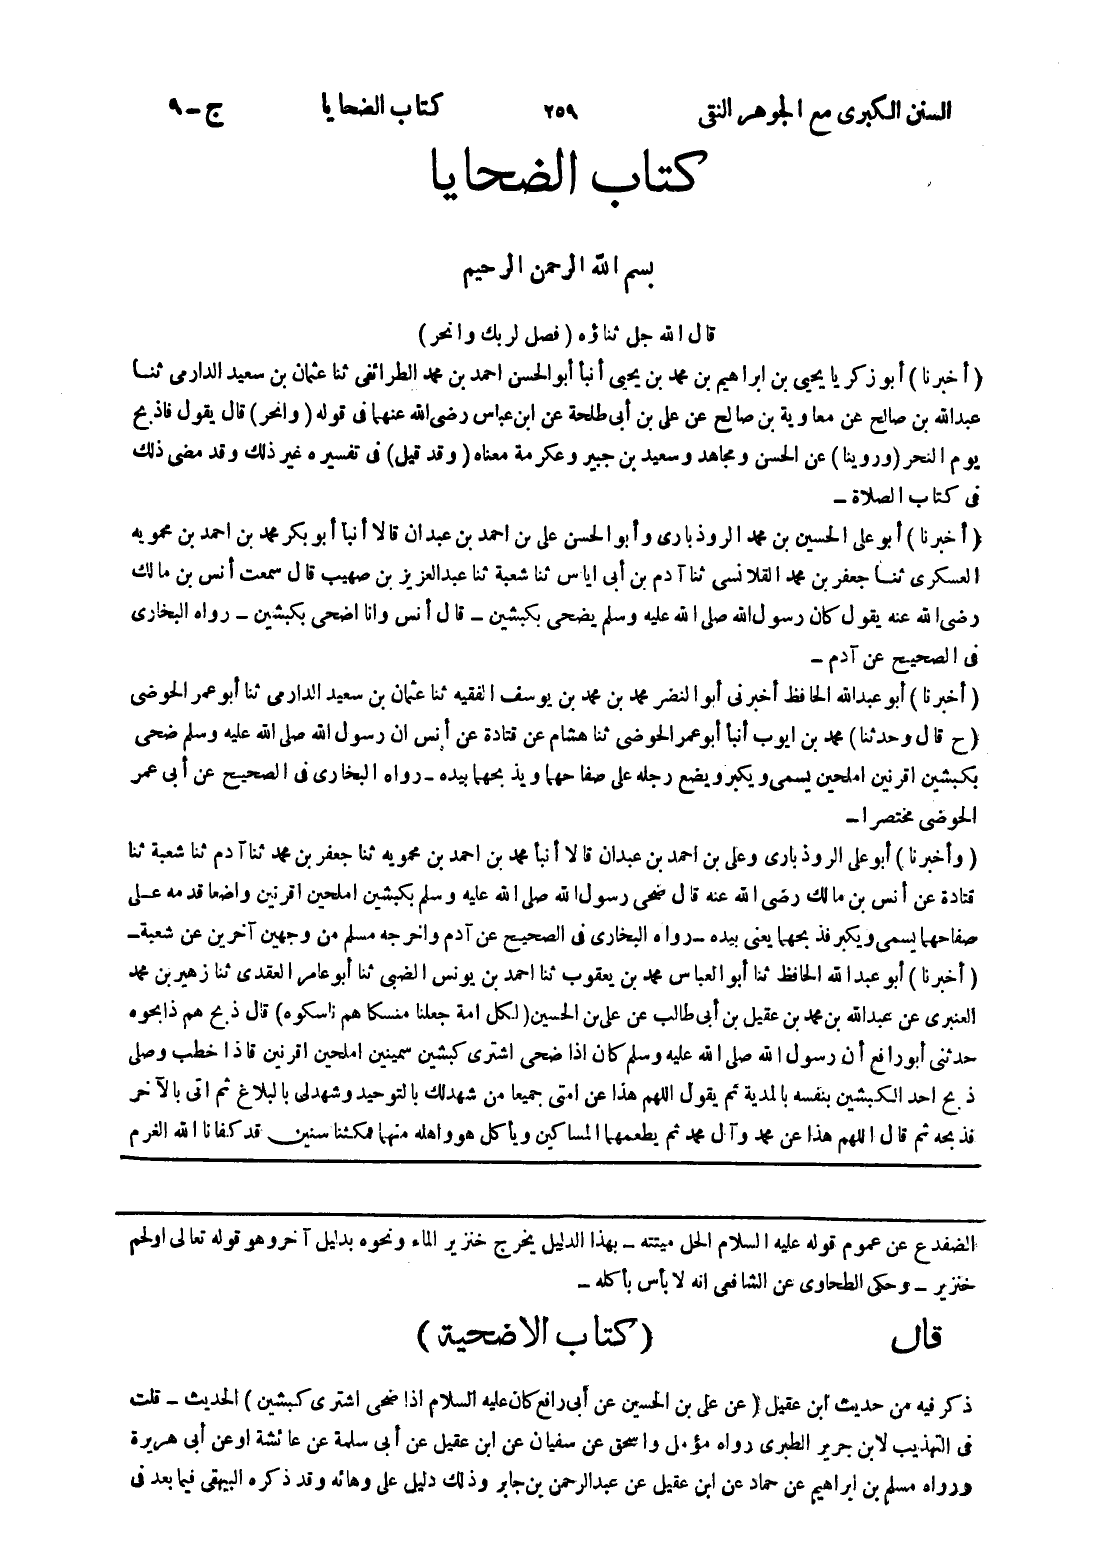 السنن الكبرى مع الجوهر النقى ٢٥٩ كتاب الضحايا ج ـ ٩
كتاب الضحايا
بسم الله الرحمن الرحيم
قال الله جل ثناؤه ( فصل لربك وانحر )
( أخبرنا ) أبو زكريا يحيى بن ابراهيم بن محمد بن يحيى أنبأ أبوالحسن احمد بن محمد الطرائفى ثنا عثمان بن سعيد الدارمى ثنا
عبدالله بن صالح عن معاوية بن صالح عن على بن أبى طلحة عن ابن عباس رضى الله عنهما فى قوله ( وانحر ) قال يقول فاذبح
يوم النحر ( وروينا ) عن الحسن ومجاهد وسعيد بن جبير وعكرمة معناه ( وقد قيل ) فى تفسيره غير ذلك وقد مضى ذلك
فى كتاب الصلاة ـ
( أخبرنا ) أبو على الحسين بن محمد الروذبارى وأبو الحسن على بن احمد بن عبدان قالا أنبأ أبو بكر محمد بن احمد بن محمويه
العسكرى ثنا جعفر بن محمد القلانسى ثنا آدم بن أبى اياس ثنا شعبة ثنا عبدالعزيز بن صهيب قال سمعت أنس بن مالك
رضى الله عنه يقول كان رسول الله صلى الله عليه وسلم يضحى بكبشين ـ قال أنس وانا اضحى بكبشين ـ رواه البخارى
فى الصحيح عن آدم ـ
( أخبرنا ) أبو عبدالله الحافظ أخبرنى أبو النضر محمد بن محمد بن يوسف الفقيه ثنا عثمان بن سعيد الدارمى ثنا أبو عمر الحوضى
( ح قال وحدثنا ) محمد بن ايوب أنبأ أبو عمر الحوضى ثنا هشام عن قتادة عن أنس ان رسول الله صلى الله عليه وسلم ضحى
بكبشين اقرنين املحين يسمى ويكبر ويضع رجله على صفاحهما ويذبحهما بيده ـ رواه البخارى فى الصحيح عن أبى عمر
الحوضى مختصرا ـ
( وأخبرنا ) أبو على الروذبارى وعلى بن احمد بن عبدان قالا أنبأ محمد بن احمد بن محمويه ثنا جعفر بن محمد ثنا آدم ثنا شعبة ثنا
قتادة عن أنس بن مالك رضى الله عنه قال ضحى رسول الله صلى الله عليه وسلم بكبشين املحين اقرنين واضعا قدمه على
صفاحهما يسمى ويكبر فذبحهما يعنى بيده ـ رواه البخارى فى الصحيح عن آدم واخرجه مسلم من وجهين آخرين عن شعبة ـ
( أخبرنا ) أبو عبد الله الحافظ ثنا أبو العباس محمد بن يعقوب ثنا احمد بن يونس الضبى ثنا أبو عامر العقدى ثنا زهير بن محمد
العنبرى عن عبدالله بن محمد بن عقيل بن أبى طالب عن على بن الحسين ( لكل امة جعلنا منسكا هم ناسكوه ) قال ذبح هم ذابحوه
حدثنى أبو رافع أن رسول الله صلى الله عليه وسلم كان اذا ضحى اشترى كبشين سمينين املحين اقرنين فاذا خطب وصلى
ذبح احد الكبشين بنفسه بالمدية ثم يقول اللهم هذا عن امتى جميعا من شهدلك بالتوحيد وشهدلى بالبلاغ ثم اتى بالآخر
فذبحه ثم قال اللهم هذا عن محمد وآل محمد ثم يطعمهما المساكين ويأكل هو واهله منهما فمكثنا سنين قد كفانا الله الغرم
الضفدع عن عموم قوله عليه السلام الحل ميتته ـ بهذا الدليل يخرج خنزير الماء ونحوه بدليل آخر وهو قوله تعالى اولحم
خنزير ـ وحكى الطحاوى عن الشافعى انه لا بأس بأكله ـ
قال ( كتاب الاضحية )
ذكر فيه من حديث ابن عقيل ( عن على بن الحسين عن أبى رافع كان عليه السلام اذا ضحى اشترى كبشين ) الحديث ـ قلت
فى التهذيب لابن جرير الطبرى رواه مؤمل واسحق عن سفيان عن ابن عقيل عن أبى سلمة عن عائشة اوعن أبى هريرة
ورواه مسلم بن ابراهيم عن حماد عن ابن عقيل عن عبدالرحمن بن جابر وذلك دليل على وهائه وقد ذكره البيهقى فيما بعد فى